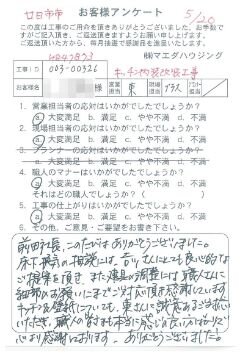 廿日市市 お客様アンケート 5/20
この度は工事のご用命を頂きありがとうございました。お手数で
すがご記入頂き、ご返送頂きますようお願い申し上げます。
ご返送頂いた方から、毎月抽選で感謝品を進呈いたします。
㈱マエダハウジング
工事ID 003-00326 キッチン内装改装工事
お客様名 様 営業担当 東 現場担当
1. 営業担当者の応対はいかがでしたでしょうか?
ⓐ 大変満足 b. 満足 c. やや不満 d. 不満
2. 現場担当者の応対はいかがでしたでしょうか?
ⓐ 大変満足 b. 満足 c. やや不満 d. 不満
3. プランナーの応対はいかがでしたでしょうか?
a. 大変満足 b. 満足 c. やや不満 d. 不満
4. 職人のマナーはいかがでしたでしょうか?
ⓐ 大変満足 b. 満足 c. やや不満 d. 不満
それはどの職人でしょうか?( )
5. 工事の仕上がりはいかがでしたでしょうか?
ⓐ 大変満足 b. 満足 c. やや不満 d. 不満
6. その他、ご意見・ご要望をお書き下さい。
前田社長、このたびはありがとうございました。
床下収納の相談には、
ご提案を頂き、また建具の調整には職人さんに
細部のお願いにまでご対応頂き感謝しています。
キッチン、壁紙についても、東さんに誠意あるご対応
いただき、職人の皆さまも本当に
心より感謝しております。ありがとうございました。